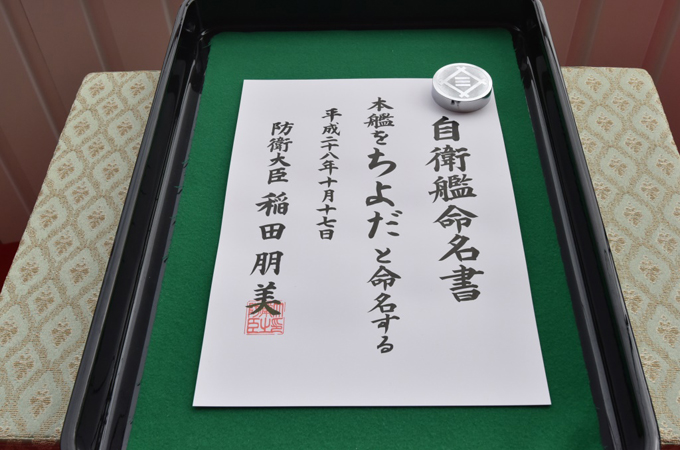 自衛艦命名書
本艦をちよだと命名する
平成二八年十月十七日
防衛大臣 稲田朋美